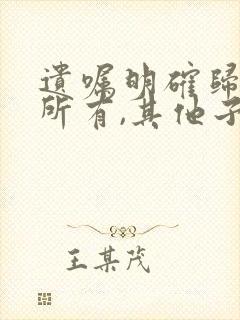 遺嘱明確歸
所有,其他子
王某茂